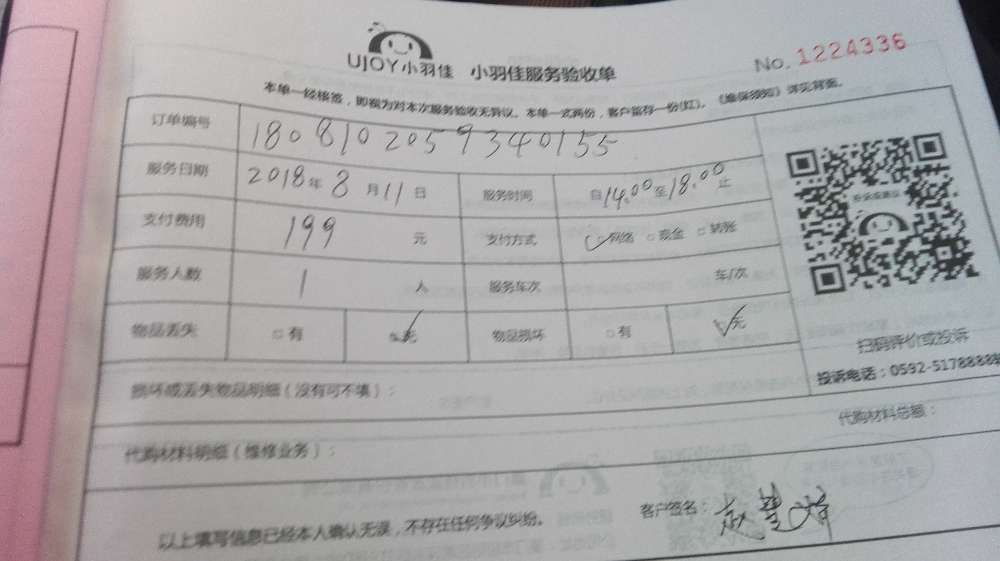 UJOY小羽佳 小羽佳服务验收单 No. 1224336
本单一经核签，即视为对本次服务验收无异议。本单一式两份，客户留存一份(红)。《维保须知》详见背面。
订单编号 1808102059340155
服务日期 2018年8月11日 服务时间 自14.00至18.00止
支付费用 199 元 支付方式 网络 现金 转账
服务人数 1 人 服务车次 车/次
物品丢失 有 无 物品损坏 有 无
扫码评价或投诉
投诉电话：0592-5178888
损坏或丢失物品明细（没有可不填）：
代购材料明细（维修业务）： 代购材料总额：
以上填写信息已经本人确认无误，不存在任何争议纠纷。 客户签名：